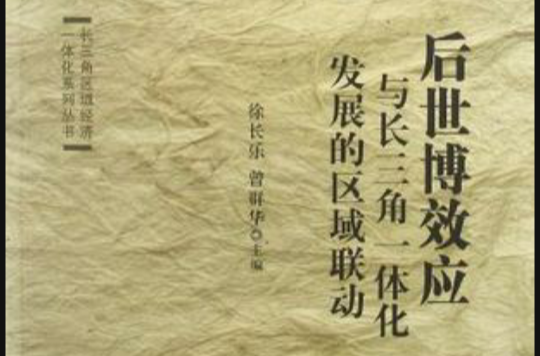 后世博效应
与长三角一体化
发展的区域联动
徐长乐 曾群华◎主编
长三角区域经济
一体化系列丛书